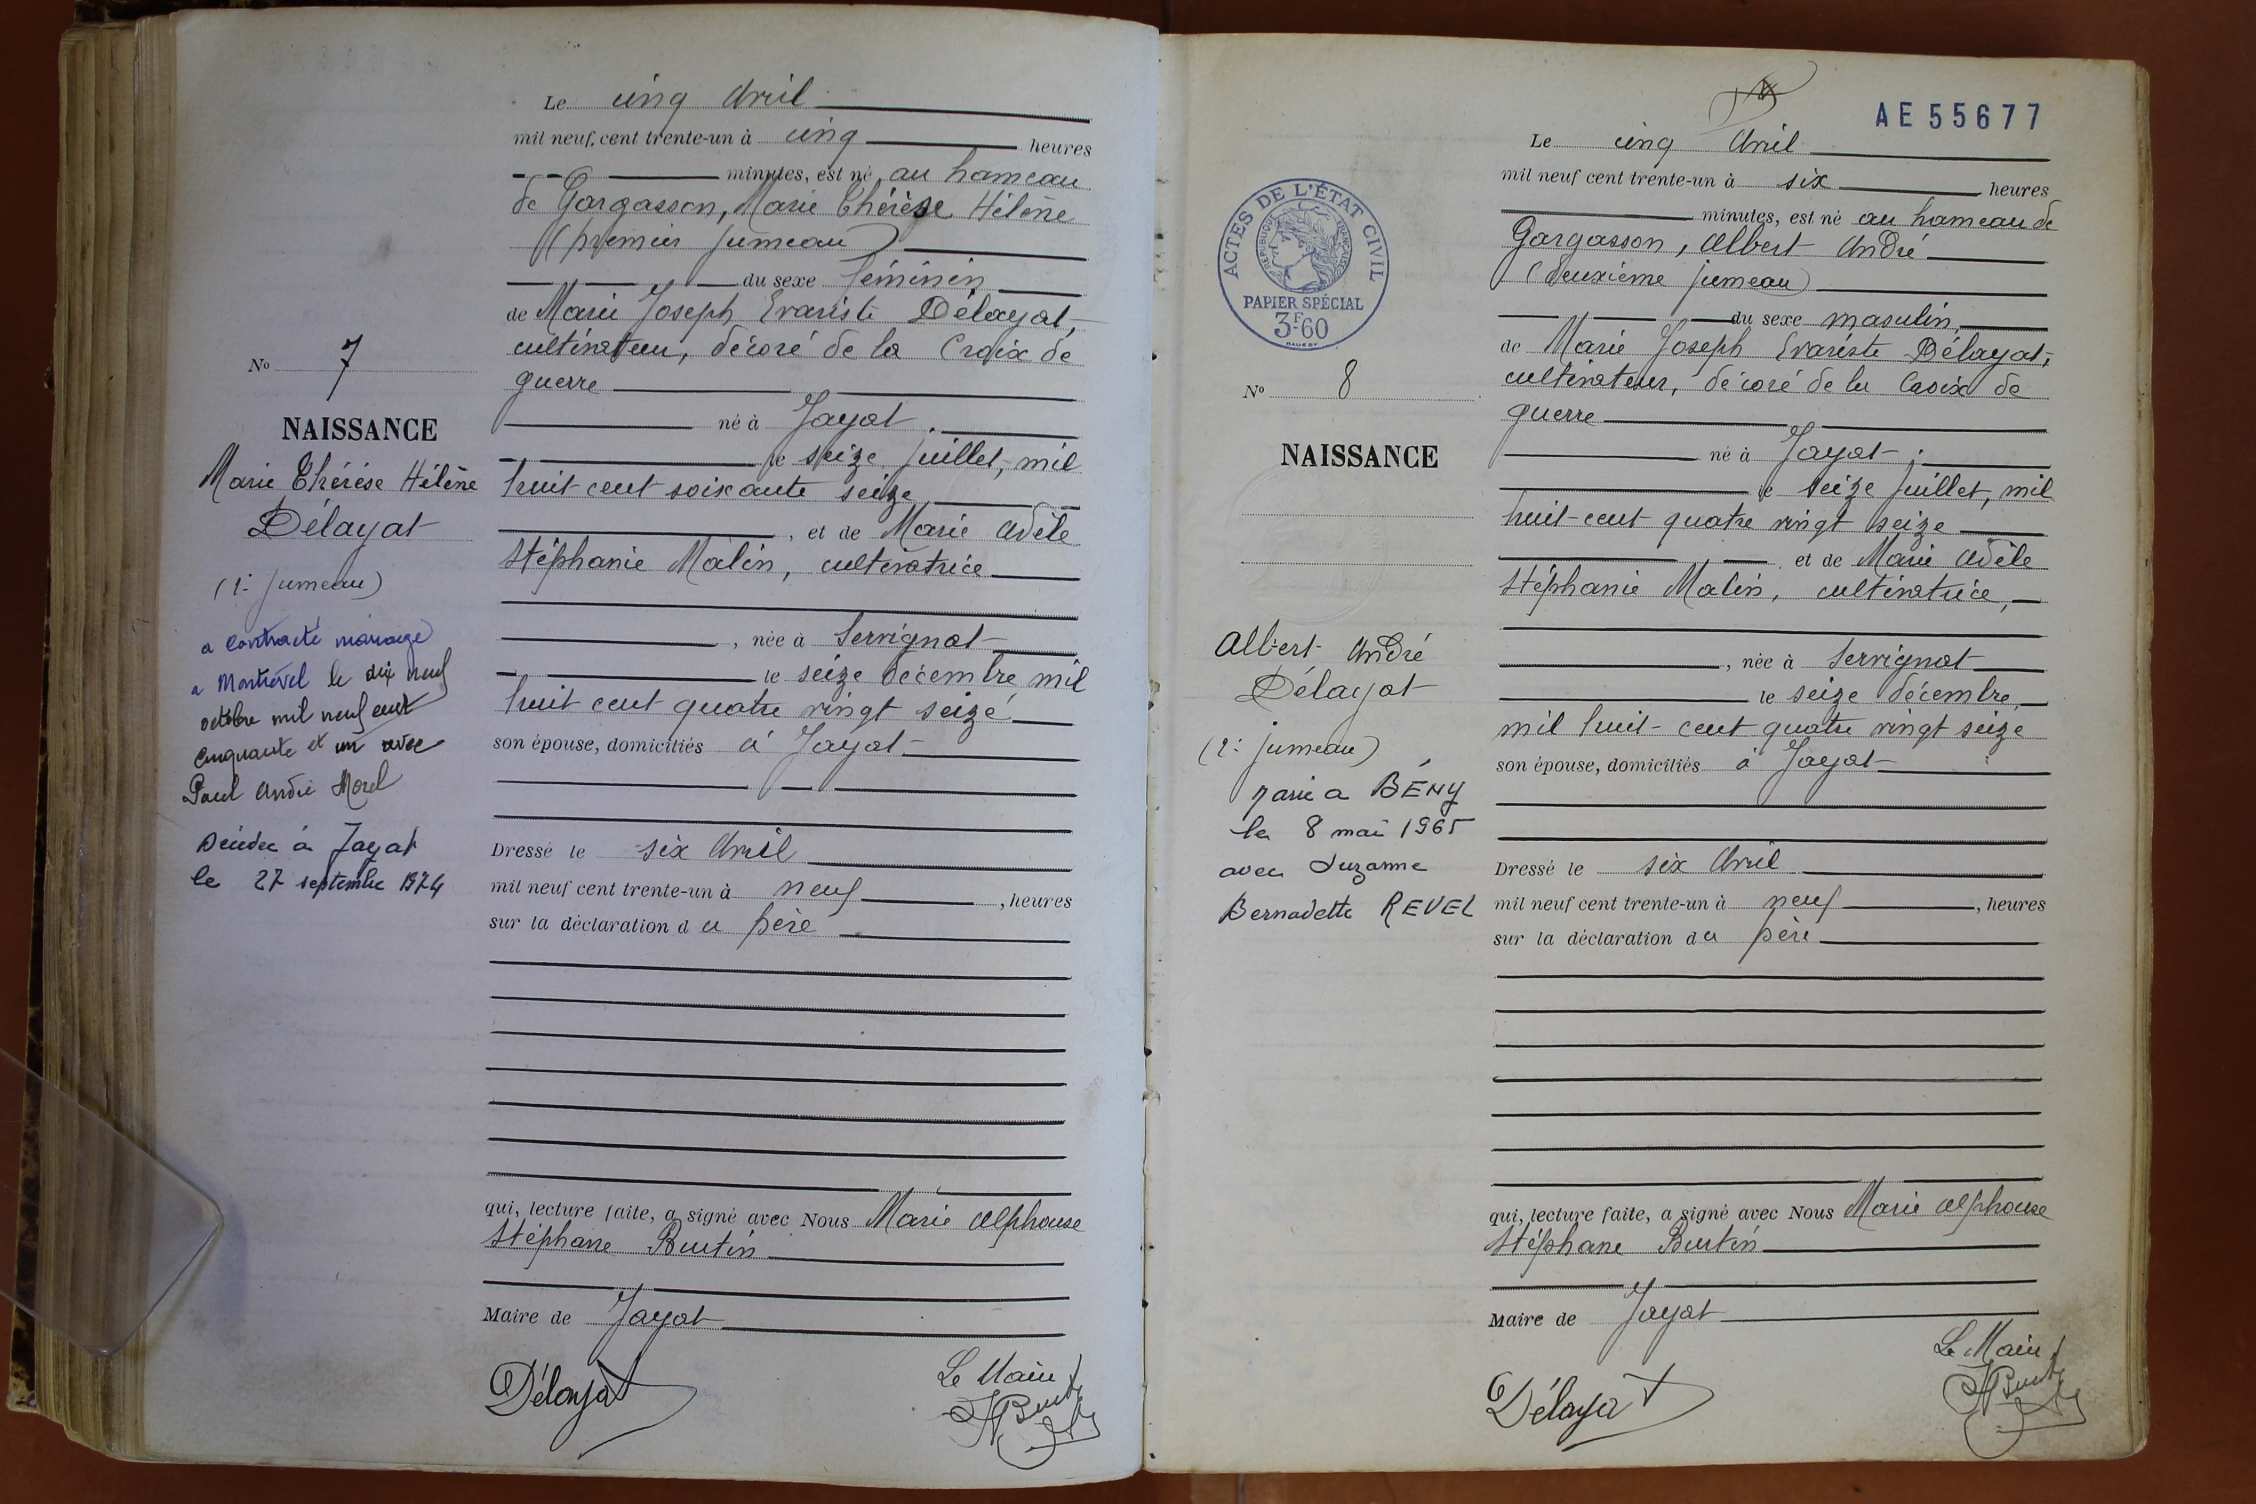 Le cinq Avril
mil neuf cent trente-un à cinq heures
minutes, est né au hameau
de Gargasson, Marie Thérèse Hélène
(premier jumeau)
du sexe féminin
de Marie Joseph Evariste Délayat,
cultivateur, décoré de la Croix de
guerre
né à Jayat
le seize juillet, mil
huit cent soixante seize
, et de Marie Adèle
Stéphanie Malin, cultivatrice
, née à Servignat
le seize décembre mil
huit cent quatre vingt seize
son épouse, domiciliés à Jayat
Dressé le six Avril
mil neuf cent trente-un à neuf, heures
sur la déclaration du père
qui, lecture faite, a signé avec Nous Marie Alphonse
Stéphane Burtin
Maire de Jayat
Délayat
Le Maire
No 7
NAISSANCE
Marie Thérèse Hélène
Délayat
(1: jumeau)
a contracté mariage
a Montrevel le dix neuf
octobre mil neuf cent
cinquante et un avec
Paul André Morel
Décédée à Jayat
le 27 septembre 1974
AE55677
Le cinq Avril
mil neuf cent trente-un à six heures
minutes, est né au hameau de
Gargasson, Albert André
(deuxième jumeau)
du sexe masculin,
de Marie Joseph Evariste Délayat,
cultivateur, décoré de la Croix de
guerre
né à Jayat;
le seize juillet, mil
huit-cent quatre vingt seize
et de Marie Adèle
Stéphanie Malin, cultivatrice,
, née à Servignat
le seize décembre
mil huit-cent quatre vingt seize
son épouse, domiciliés à Jayat
Dressé le six Avril
mil neuf cent trente-un à neuf, heures
sur la déclaration du père
qui, lecture faite, a signé avec Nous Marie Alphonse
Stéphane Burtin
Maire de Jayat
Délayat
Le Maire
ACTES DE L'ÉTAT CIVIL
RÉPUBLIQUE FRANÇAISE
PAPIER SPÉCIAL
3F.60
No 8
NAISSANCE
Albert André
Délayat
(2: jumeau)
Marié a BÉNY
le 8 mai 1965
avec Suzanne
Bernadette REVEL